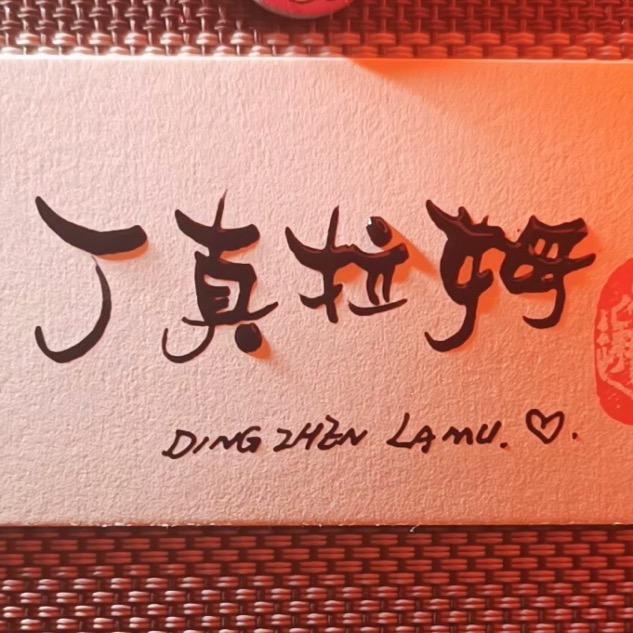 丁真拉姆
DING ZHEN LAMU. ♡.